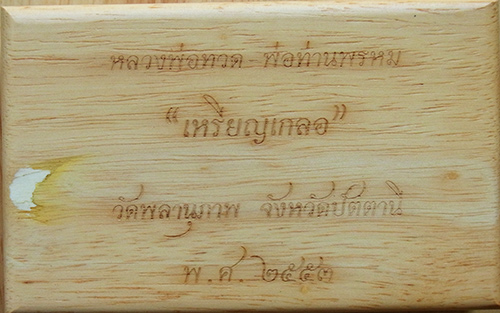 หลวงพ่อทวด - พ่อท่านพรหม
“เหรียญเกลอ”
วัดพลานุภาพ จังหวัดปัตตานี
พ.ศ. ๒๕๕๓